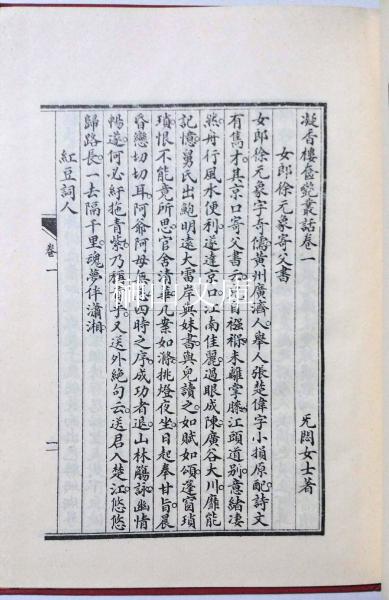 凝香樓奩豔叢話卷一 无悶女士著
女郎徐元象寄父書
女郎徐元象字奇儒黃州廣濟人舉人張楚偉字小損原配詩文
有雋才其京口寄父書云自襁褓未離掌膝江頭道別意緒淒
然舟行風水便利遂達京口江南佳麗過眼成陳廣谷大川靡能
記憶舅氏出鮑明遠大雷岸與妹書與兒讀之如賦如頌篷窗瑣
瑣恨不能竟所思官舍清華凡案如滌挑燈夜坐日起奉甘旨晨
昏戀切切耳阿爺阿母四時之序成功者退山林觴詠幽情
暢達何必紆拖青紫乃稱乎又送外絕句云送君入楚江悠悠
歸路長一去隔千里魂夢伴瀟湘
紅豆詞人
卷一